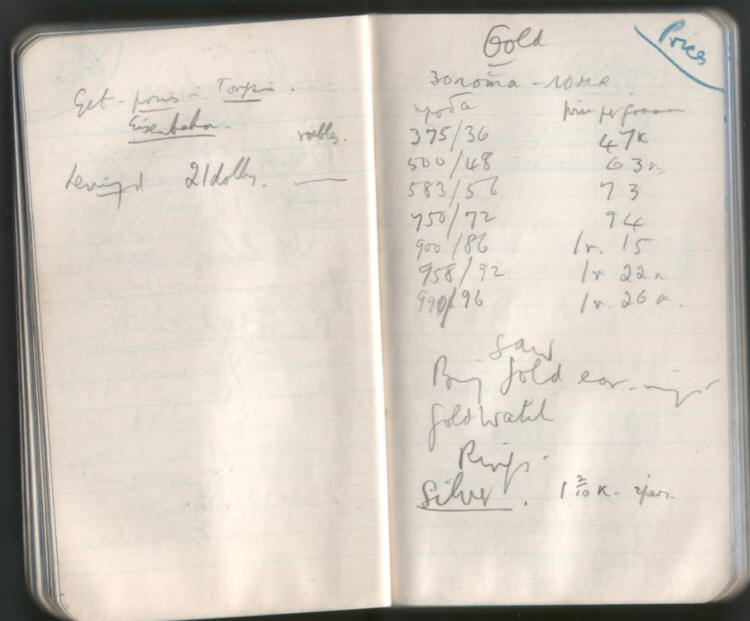 Get - prices in Torgsin.
Eisenbahn. roubles.
21 dolls.
Prices
Gold
золота - лома
проба price per gramme
375/36 47к
500/48 63к
583/56 73
750/72 94
900/86 1r. 15
958/92 1r 22к
990/96 1r. 26к.
Saw
Buy Gold ear-rings
Gold watch
Rings.
Silver. 1 2/10 к. грам.